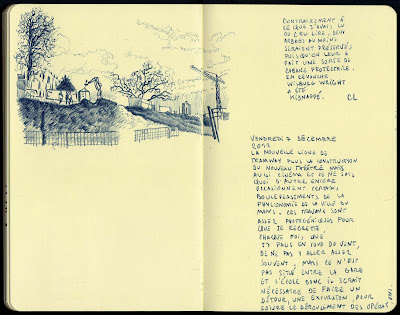 CONTRAIREMENT À
CE QUE J'AVAIS LU
OU CRU LIRE, DEUX
ARBRES AU MOINS
SERAIENT PRÉSERVÉS
PUISQU'ON LEUR A
FAIT UNE SORTE DE
CABANE PROTECTRICE.
EN REVANCHE
WILBURG WRIGHT
A ÉTÉ
KIDNAPPÉ.
VENDREDI 7 DÉCEMBRE
LA NOUVELLE LIGNE DE
TRAMWAY PLUS LA CONSTRUCTION
DU NOUVEAU THÉÂTRE MAIS
AUSSI CINÉMA ET JE NE SAIS
QUOI D'AUTRE ENCORE
OCCASIONNENT CERTAINS
BOULEVERSEMENTS DE LA
PHYSIONOMIE DE LA VILLE DU
MANS. CES TRAVAUX SONT
ASSEZ PHOTOGÉNIQUES POUR
QUE JE REGRETTE,
CHAQUE FOIS QUE
J'Y PASSE EN COUP DE VENT,
DE NE PAS Y ALLER ASSEZ
SOUVENT, MAIS CE N'EST
PAS SITUÉ ENTRE LA GARE
ET L'ÉCOLE DONC IL SERAIT
NÉCESSAIRE DE FAIRE UN
DÉTOUR, UNE EXCURSION, POUR
SUIVRE LE DÉROULEMENT DES OPÉRATIONS.